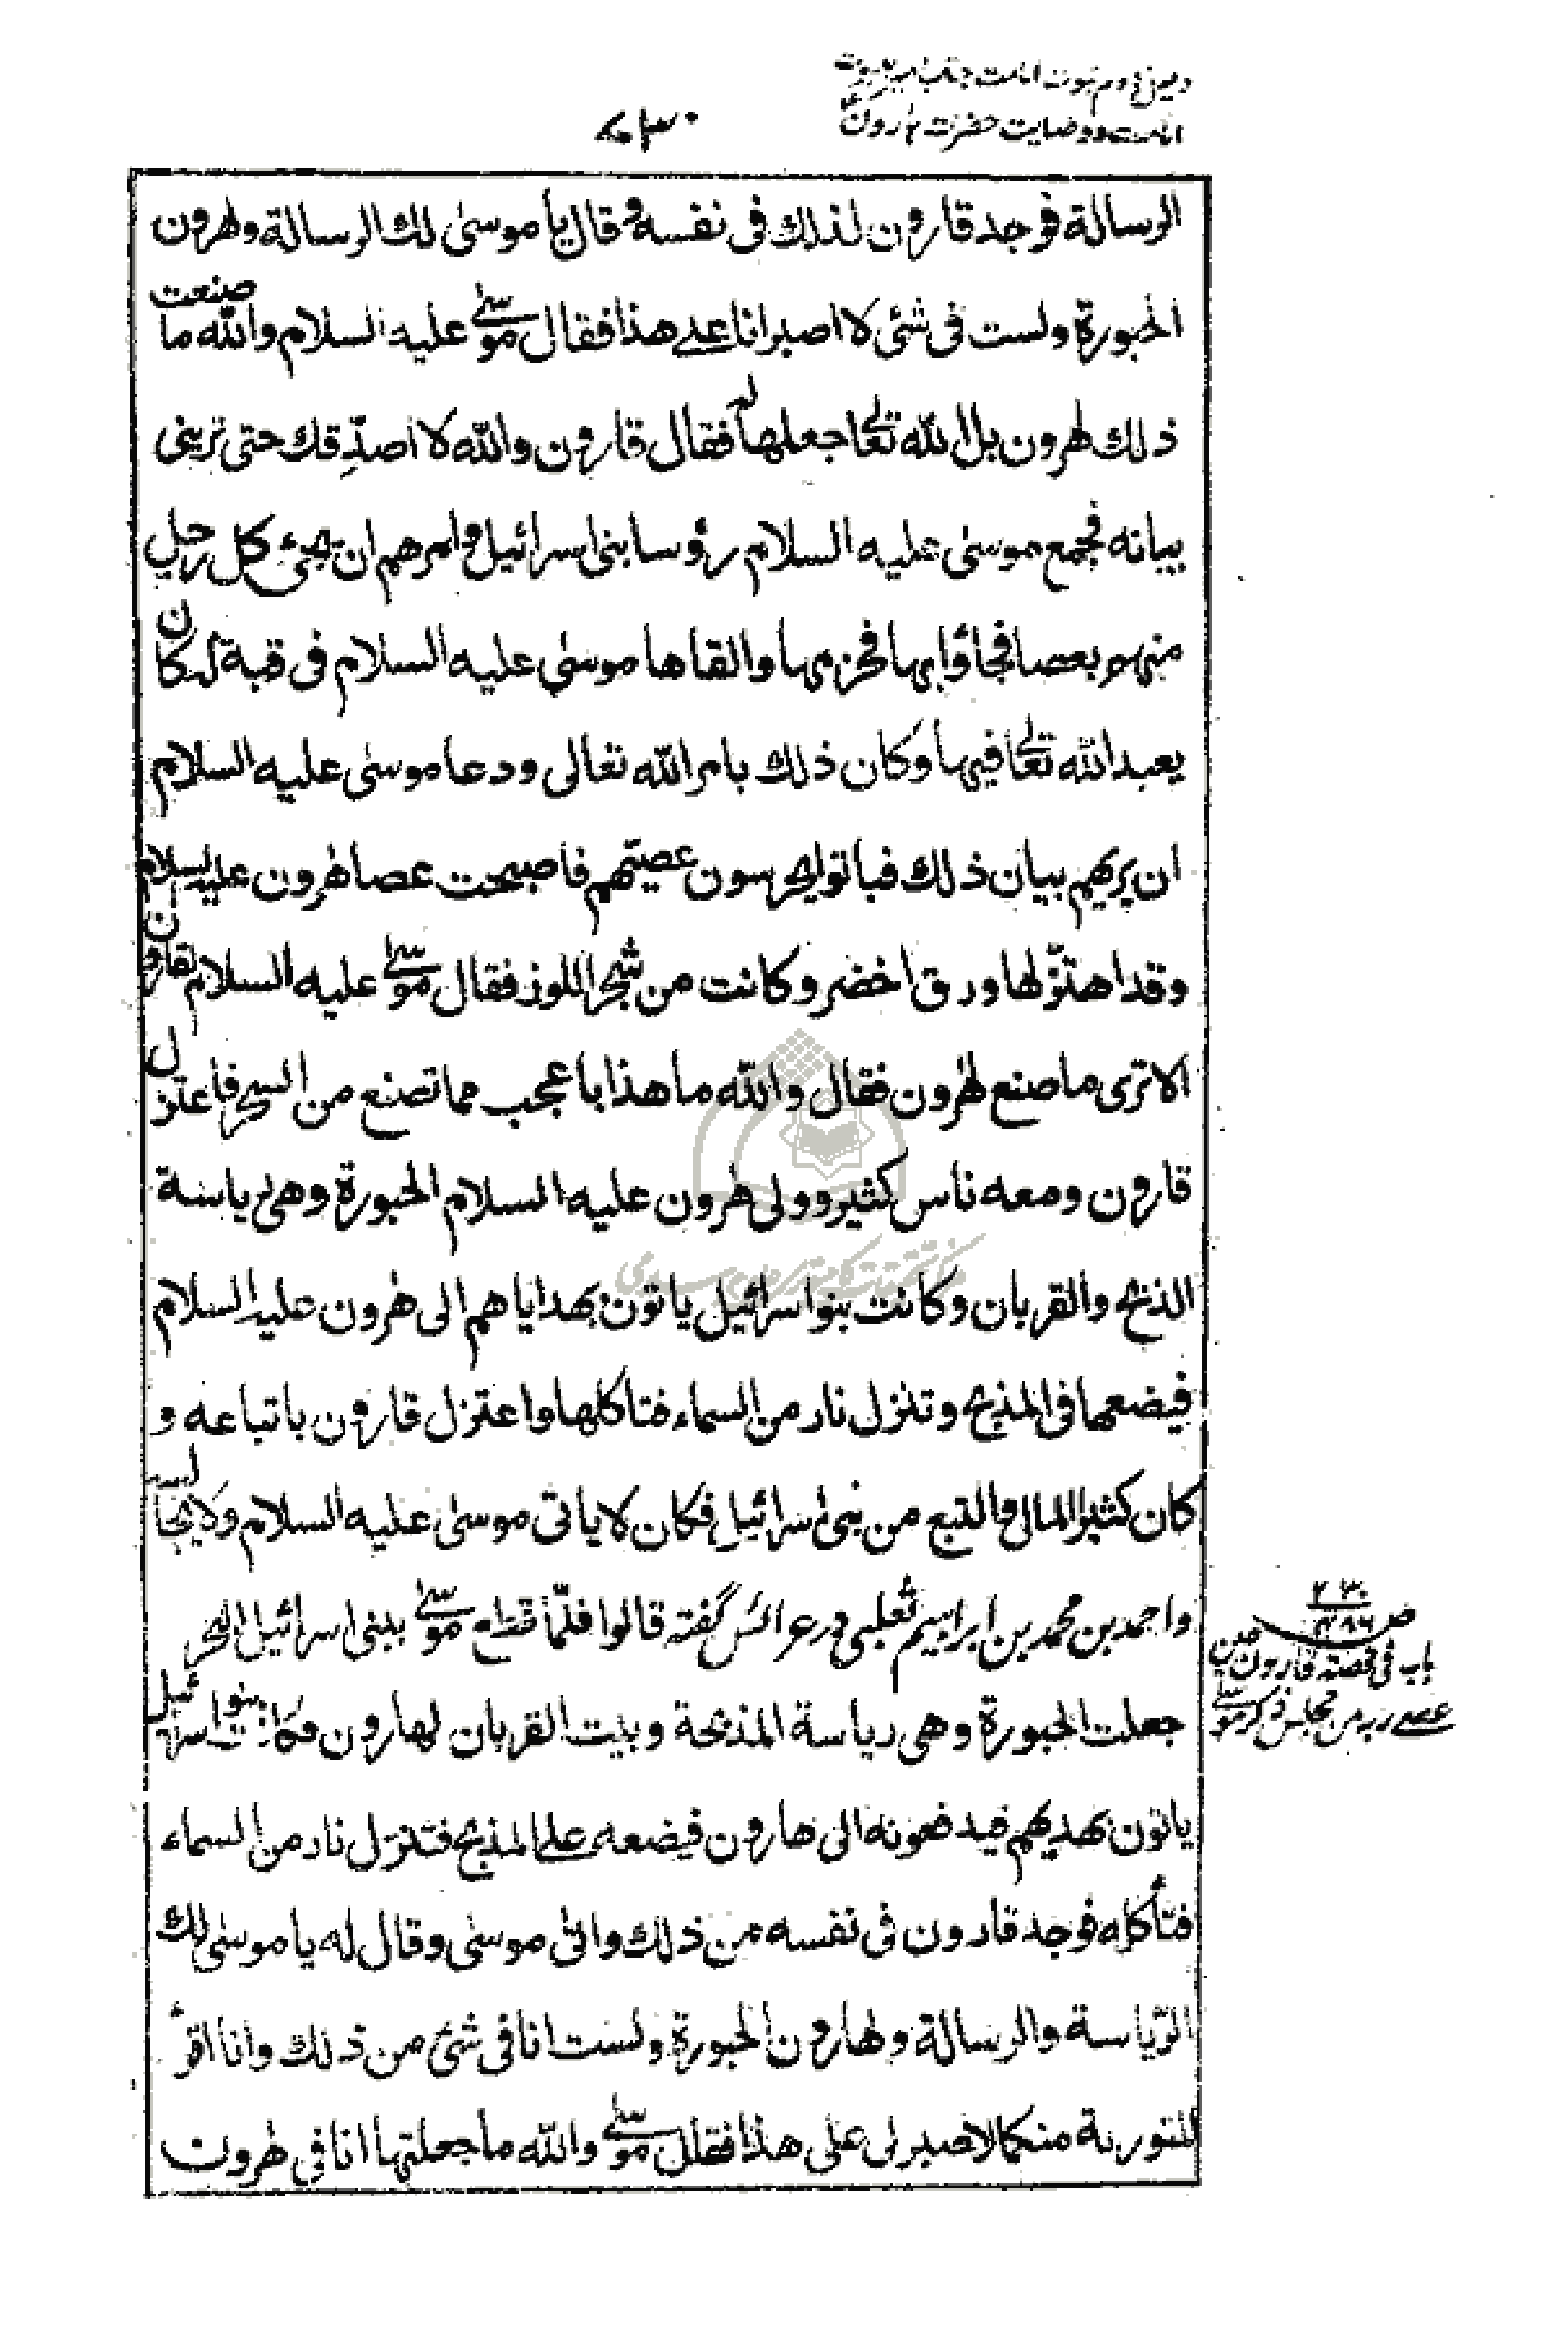 امامت و وصايت حضرت هارون
الرسالة فوجد قارون لذلك فى نفسه وقال يا موسىٰ لك الرسالة ولهرون
الحبورة ولست فى شئ لا اصبر انا على هذا فقال موسىٰ عليه السلام والله ما صنعت
ذلك لهرون بل الله تعالىٰ جعلها له فقال قارون والله لا اصدّقك حتى ترينى
بيانه فجمع موسىٰ عليه السلام رؤسا بنى اسرائيل وامرهم ان يجئ كل رجل
منهم بعصا فجاؤا بها فحزمها والقاها موسىٰ عليه السلام فى قبة له كان
يعبد الله تعالىٰ فيها وكان ذلك بامر الله تعالى ودعا موسىٰ عليه السلام
ان يريهم بيان ذلك فباتوا يحرسون عصيّهم فاصبحت عصا هٰرون عليه السلام
وقد اهتزّ لها ورق اخضر وكانت من شجر اللوز فقال موسىٰ عليه السلام لقارون
الا ترى ما صنع لهٰرون فقال والله ما هذا باعجب مما تصنع من السحر فاعتزل
قارون ومعه ناس كثير وولى هٰرون عليه السلام الحبورة وهى رياسة
الذبح والقربان وكانت بنو اسرائيل ياتون بهداياهم الى هٰرون عليه السلام
فيضعها فى المذبح وتنزل نار من السماء فتاكلها واعتزل قارون باتباعه و
كان كثير المال والتبع من بنى اسرائيل فكان لا ياتى موسىٰ عليه السلام ولا يجالسه
واحمد بن محمد بن ابراهيم ثعلبى در عرائس گفته قالوا فلمّا قطع موسىٰ ببنى اسرائيل البحر
جعلت الحبورة وهى رياسة المذبحة وبيت القربان لهارون وكانت بنو اسرائيل
ياتون بهديهم فيدفعونه الى هارون فيضعه على المذبح فتنزل نار من السماء
فتأكله فوجد قارون فى نفسه من ذلك واتى موسىٰ وقال له يا موسىٰ لك
الرّياسة والرسالة ولهارون الحبورة ولست انا فى شئ من ذلك وانا اقرأ
للتورية منكما لا صبر لى على هذا فقال موسىٰ والله ما جعلتها انا فى هٰرون
باب فى قصة قارون حين
عصى ربه من مجلس ذكر موسىٰ